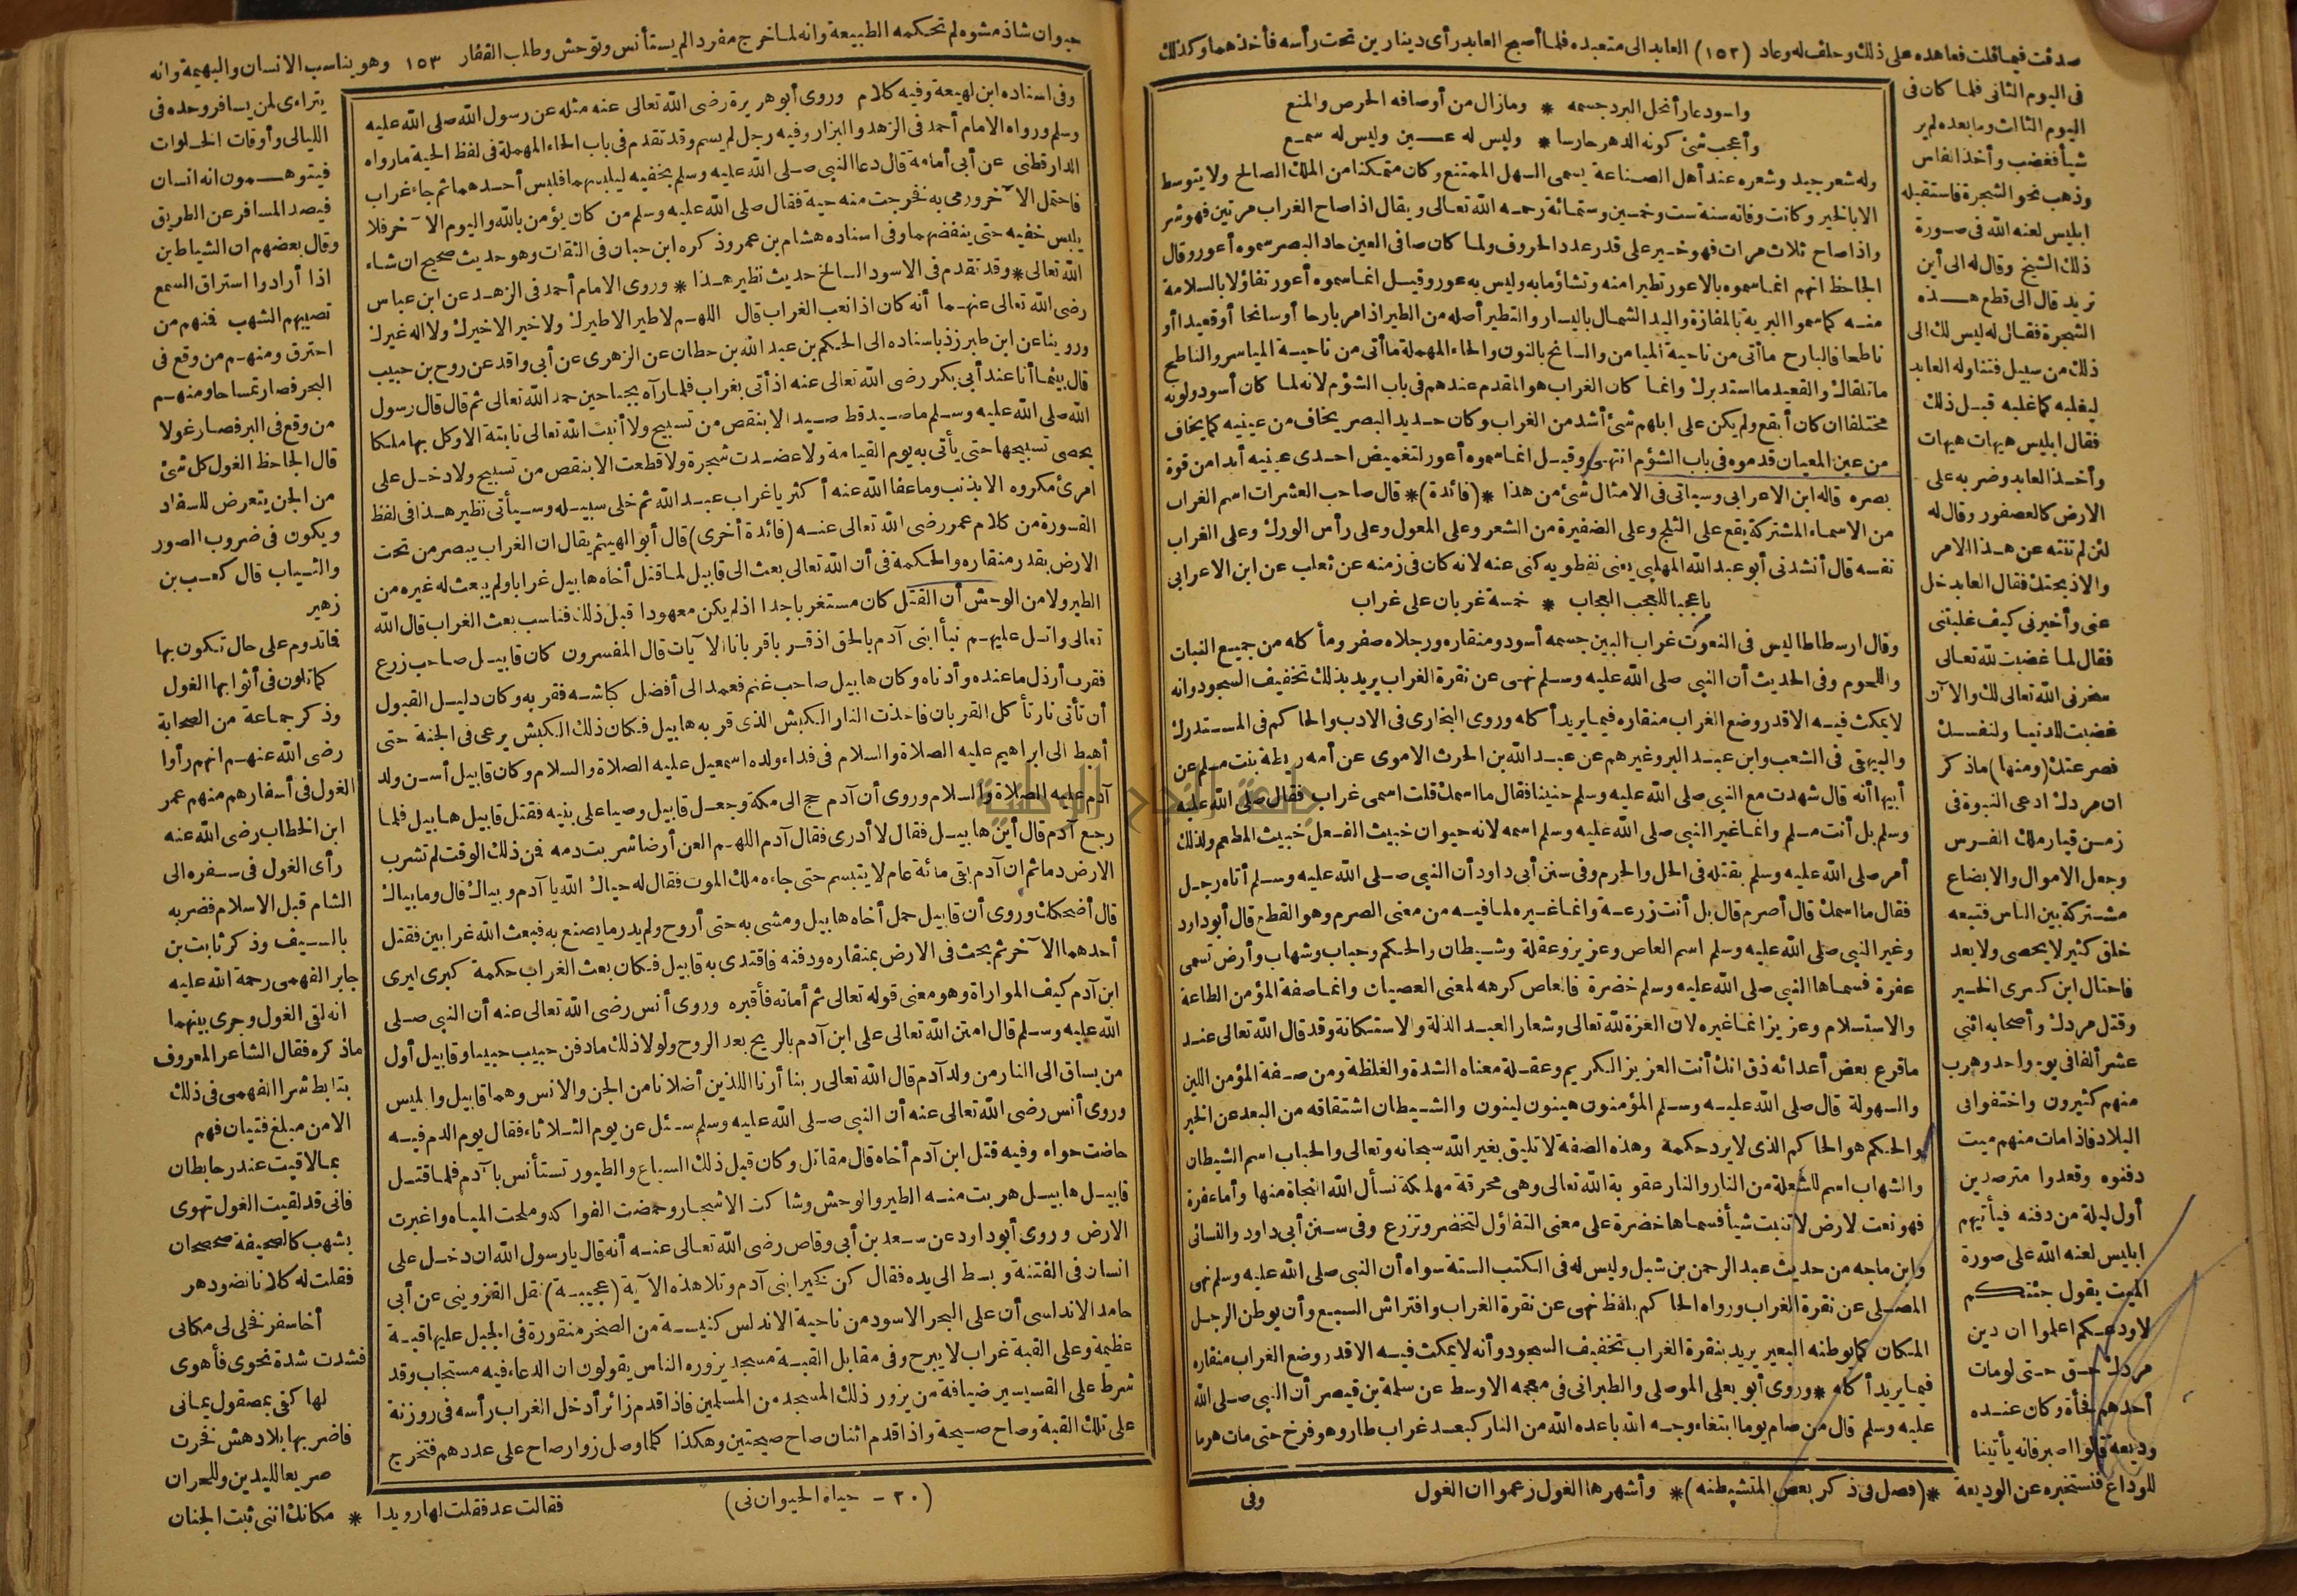 صدقت فيما قلت فعاهده على ذلك وحلف له وعاد (١٥٢) العابد الى متعبده فلما أصبح العابد رأى دينارين تحت رأسه فأخذهما وكذلك
فى اليوم الثانى فلما كان فى
اليوم الثالث وما بعده لم ير
شيأ فغضب وأخذ الفاس
وذهب نحو الشجرة فاستقبله
ابليس لعنه الله فى صورة
ذلك الشيخ وقال له الى أين
تريد قال الى قطع هذه
الشجرة فقال له ليس لك الى
ذلك من سبيل فتناوله العابد
ليغلبه كما غلبه قبل ذلك
فقال ابليس هيهات هيهات
وأخذ العابد وضربه على
الارض كالعصفور وقال له
لئن لم تنته عن هذا الامر
والا ذبحتك فقال العابد خل
عنى وأخبرنى كيف غلبتنى
فقال لما غضبت لله تعالى
سخرنى الله تعالى لك والآن
غضبت للدنيا ولنفسك
فصرعتك (ومنها) ماذكر
ان مردك ادعى النبوة فى
زمن قباد ملك الفرس
وجعل الاموال والابضاع
مشتركة بين الناس فتبعه
خلق كثير لا يحصى ولا يعد
فاحتال ابن كسرى الخير
وقتل مردك وأصحابه اثنى
عشر ألفا فى يوم واحد وهرب
منهم كثيرون واختفوا فى
البلاد فاذا مات منهم ميت
دفنوه وقعدوا مترصدين
أول ليلة من دفنه فيأتيهم
ابليس لعنه الله على صورة
الميت يقول جئتكم
لاودعكم اعلموا ان دين
مردك حق حتى لو مات
أحدهم فجأة وكان عنده
وديعة قالوا اصبر فانه يأتينا
للوداع فنستخبره عن الوديعة * (فصل فى ذكر بعض المتشيطنه) * وأشهرها الغول زعموا ان الغول
واسود عار أنحل البرد جسمه * ومازال من أوصافه الحرص والمنع
وأعجب شئ كونه الدهر حارسا * وليس له عين وليس له سمع
وله شعر جيد وشعره عند أهل الصناعة يسمى السهل الممتنع وكان متمكنا من الملك الصالح ولا يتوسط
الا بالخير وكانت وفاته سنة ست وخمسين وستمائة رحمه الله تعالى ويقال اذا صاح الغراب مرتين فهو شر
واذا صاح ثلاث مرات فهو خير على قدر عدد الحروف ولما كان صافى العين حاد البصر سموه أعور وقال
الجاحظ انهم انما سموه بالاعور تطيرا منه وتشاؤما به وليس به عور وقيل انما سموه أعور تفاؤلا بالسلامة
منه كما سموا البرية بالمفازة واليد الشمال باليسار والتطير أصله من الطير اذا مر بارحا أو سانحا أو قعيدا أو
ناطحا فالبارح ما أتى من ناحية الميامن والسانح بالنون والحاء المهملة ما أتى من ناحية المياسر والناطح
ما تلقاك والقعيد ما استدبرك وانما كان الغراب هو المقدم عندهم فى باب الشؤم لانه لما كان أسود ولونه
مختلفا ان كان أبقع ولم يكن على ابلهم شئ أشد من الغراب وكان حديد البصر يخاف من عينيه كما يخاف
من عين المعيان قدموه فى باب الشؤم انتهى وقيل انما سموه أعور لتغميض احدى عينيه أبدا من قوة
بصره قاله ابن الاعرابى وسيأتى فى الامثال شئ من هذا * (فائدة) * قال صاحب العشرات اسم الغراب
من الاسماء المشتركة يقع على الثلج وعلى الضفيرة من الشعر وعلى المعول وعلى رأس الورك وعلى الغراب
نفسه قال أنشدنى أبو عبد الله المهلبى يعنى نفطويه كنى عنه لانه كان فى زمنه عن ثعلب عن ابن الاعرابى
يا عجبا للعجب العجاب * خمسة غربان على غراب
وقال ارسطاطاليس فى النعوت غراب البين جسمه أسود ومنقاره ورجلاه صفر ومأكله من جميع النبات
واللحوم وفى الحديث أن النبى صلى الله عليه وسلم نهى عن نقرة الغراب يريد بذلك تخفيف السجود وانه
لا يمكث فيه الا قدر وضع الغراب منقاره فيما يريد أكله وروى البخارى فى الادب والحاكم فى المستدرك
والبيهقى فى الشعب وابن عبد البر وغيرهم عن عبد الله بن الحرث الاموى عن أمه ريطة بنت مسلم عن
أبيها أنه قال شهدت مع النبى صلى الله عليه وسلم حنينا فقال ما اسمك قلت اسمى غراب فقال صلى الله عليه
وسلم بل أنت مسلم وانما غير النبى صلى الله عليه وسلم اسمه لانه حيوان خبيث الفعل خبيث المطعم ولذلك
أمر صلى الله عليه وسلم بقتله فى الحل والحرم وفى سنن أبى داود أن النبى صلى الله عليه وسلم أتاه رجل
فقال ما اسمك قال أصرم قال بل أنت زرعة وانما غيره لما فيه من معنى الصرم وهو القطع قال أبو داود
وغير النبى صلى الله عليه وسلم اسم العاص وعزيز وعقلة وشيطان والحكم وحباب وشهاب وأرض تسمى
عفرة فسماها النبى صلى الله عليه وسلم خضرة فالعاص كرهه لمعنى العصيان وانما صفة المؤمن الطاعة
والاستسلام وعزيز انما غيره لان العزة لله تعالى وشعار العبد الذلة والاستكانة وقد قال الله تعالى عند
ما قرع بعض أعدائه ذق انك أنت العزيز الكريم وعقلة معناه الشدة والغلظة ومن صفة المؤمن اللين
والسهولة قال صلى الله عليه وسلم المؤمنون هينون لينون والشيطان اشتقاقه من البعد عن الخير
والحكم هو الحاكم الذى لا يرد حكمه وهذه الصفة لا تليق بغير الله سبحانه وتعالى والحباب اسم الشيطان
والشهاب اسم للشعلة من النار والنار عقوبة الله تعالى وهى محرقة مهلكة نسأل الله النجاة منها وأما عفرة
فهو نعت لارض لا تنبت شيأ فسماها خضرة على معنى التفاؤل لتخضر وتزرع وفى سنن أبى داود والنسائى
وابن ماجه من حديث عبد الرحمن بن شبل وليس له فى الكتب الستة سواه أن النبى صلى الله عليه وسلم نهى
المصلى عن نقرة الغراب ورواه الحاكم بلفظ نهى عن نقرة الغراب وافتراش السبع وأن يوطن الرجل
المكان كما يوطنه البعير يريد بنقرة الغراب تخفيف السجود وأنه لا يمكث فيه الا قدر وضع الغراب منقاره
فيما يريد أكله * وروى أبو يعلى الموصلى والطبرانى فى معجمه الاوسط عن سلمة بن قيصر أن النبى صلى الله
عليه وسلم قال من صام يوما ابتغاء وجه الله باعده الله من النار كبعد غراب طار وهو فرخ حتى مات هرما
وفى
حيوان شاذ مشوه لم تحكمه الطبيعة وانه لما خرج مفردا لم يستأنس وتوحش وطلب القفار ١٥٣ وهو يناسب الانسان والبهيمة وانه
وفى اسناده ابن لهيعة وفيه كلام وروى أبو هريرة رضى الله تعالى عنه مثله عن رسول الله صلى الله عليه
وسلم ورواه الامام أحمد فى الزهد والبزار وفيه رجل لم يسم وقد تقدم فى باب الحاء المهملة فى لفظ الحية ما رواه
الدارقطنى عن أبى أمامة قال دعا النبى صلى الله عليه وسلم بخفيه ليلبسهما فلبس أحدهما ثم جاء غراب
فاحتمل الآخر ورمى به فخرجت منه حية فقال صلى الله عليه وسلم من كان يؤمن بالله واليوم الآخر فلا
يلبس خفيه حتى ينفضهما وفى اسناده هشام بن عمرو ذكره ابن حبان فى الثقات وهو حديث صحيح ان شاء
الله تعالى * وقد تقدم فى الاسود السالخ حديث نظير هذا * وروى الامام أحمد فى الزهد عن ابن عباس
رضى الله تعالى عنهما أنه كان اذا نعب الغراب قال اللهم لا طير الا طيرك ولا خير الا خيرك ولا اله غيرك
وروينا عن ابن طبرزذ باسناده الى الحكم بن عبد الله بن حطان عن الزهرى عن أبى واقد عن روح بن حبيب
قال بينما أنا عند أبى بكر رضى الله تعالى عنه اذ أتى بغراب فلما رآه بجناحين حمد الله تعالى ثم قال قال رسول
الله صلى الله عليه وسلم ما صيد قط صيد الا بنقص من تسبيح ولا أنبت الله تعالى نابتة الا وكل بها ملكا
يحصى تسبيحها حتى يأتى به يوم القيامة ولا عضدت شجرة ولا قطعت الا بنقص من تسبيح ولا دخل على
امرئ مكروه الا بذنب وما عفا الله عنه أكثر يا غراب عبد الله ثم خلى سبيله وسيأتى نظير هذا فى لفظ
القسورة من كلام عمر رضى الله تعالى عنه (فائدة أخرى) قال أبو الهيثم يقال ان الغراب يبصر من تحت
الارض بقدر منقاره والحكمة فى أن الله تعالى بعث الى قابيل لما قتل أخاه هابيل غرابا ولم يبعث له غيره من
الطير ولا من الوحش أن القتل كان مستغربا جدا اذ لم يكن معهودا قبل ذلك فناسب بعث الغراب قال الله
تعالى واتل عليهم نبأ ابنى آدم بالحق اذ قربا قربانا الآيات قال المفسرون كان قابيل صاحب زرع
فقرب أرذل ما عنده وأدناه وكان هابيل صاحب غنم فعمد الى أفضل كباشه فقربه وكان دليل القبول
أن تأتى نار تأكل القربان فأخذت النار الكبش الذى قربه هابيل فكان ذلك الكبش يرعى فى الجنة حتى
أهبط الى ابراهيم عليه الصلاة والسلام فى فداء ولده اسمعيل عليه الصلاة والسلام وكان قابيل أسن ولد
آدم عليه الصلاة والسلام وروى أن آدم حج الى مكة وجعل قابيل وصيا على بنيه فقتل قابيل هابيل فلما
رجع آدم قال أين هابيل فقال لا أدرى فقال آدم اللهم العن أرضا شربت دمه فمن ذلك الوقت لم تشرب
الارض دما ثم ان آدم بقى مائة عام لا يتبسم حتى جاءه ملك الموت فقال له حياك الله يا آدم وبياك قال وما بياك
قال أضحكك وروى أن قابيل حمل أخاه هابيل ومشى به حتى أروح ولم يدر ما يصنع به فبعث الله غرابين فقتل
أحدهما الآخر ثم بحث فى الارض بمنقاره ودفنه فاقتدى به قابيل فكان بعث الغراب حكمة كبرى ليرى
ابن آدم كيف المواراة وهو معنى قوله تعالى ثم أماته فأقبره وروى أنس رضى الله تعالى عنه أن النبى صلى
الله عليه وسلم قال امتن الله تعالى على ابن آدم بالريح بعد الروح ولولا ذلك ما دفن حبيب حبيبا وقابيل أول
من يساق الى النار من ولد آدم قال الله تعالى ربنا أرنا اللذين أضلانا من الجن والانس وهما قابيل وابليس
وروى أنس رضى الله تعالى عنه أن النبى صلى الله عليه وسلم سئل عن يوم الثلاثاء فقال يوم الدم فيه
حاضت حواء وفيه قتل ابن آدم أخاه قال مقاتل وكان قبل ذلك السباع والطيور تستأنس بآدم فلما قتل
قابيل هابيل هربت منه الطير والوحش وشاكت الاشجار وحمضت الفواكه وملحت المياه واغبرت
الارض وروى أبو داود عن سعد بن أبى وقاص رضى الله تعالى عنه أنه قال يا رسول الله ان دخل على
انسان فى الفتنة وبسط الى يده فقال كن كخير ابنى آدم وتلا هذه الآية (عجيبة) نقل القزوينى عن أبى
حامد الاندلسى أن على البحر الاسود من ناحية الاندلس كنيسة من الصخر منقورة فى الجبل عليها قبة
عظيمة وعلى القبة غراب لا يبرح وفى مقابل القبة مسجد يزوره الناس يقولون ان الدعاء فيه مستجاب وقد
شرط على القسيسين ضيافة من يزور ذلك المسجد من المسلمين فاذا قدم زائر أدخل الغراب رأسه فى روزنة
على تلك القبة وصاح صيحة واذا قدم اثنان صاح صيحتين وهكذا كلما وصل زوار صاح على عددهم فتخرج
(٢٠ - حياة الحيوان نى)
يتراءى لمن يسافر وحده فى
الليالى وأوقات الخلوات
فيتوهمون انه انسان
فيصد المسافر عن الطريق
وقال بعضهم ان الشياطين
اذا أرادوا استراق السمع
تصيبهم الشهب فمنهم من
احترق ومنهم من وقع فى
البحر فصار تمساحا ومنهم
من وقع فى البر فصار غولا
قال الجاحظ الغول كل شئ
من الجن يتعرض للسفار
ويكون فى ضروب الصور
والثياب قال كعب بن
زهير
فما تدوم على حال تكون بها
كما تلون فى أثوابها الغول
وذكر جماعة من الصحابة
رضى الله عنهم انهم رأوا
الغول فى أسفارهم منهم عمر
ابن الخطاب رضى الله عنه
رأى الغول فى سفره الى
الشام قبل الاسلام فضربه
بالسيف وذكر ثابت بن
جابر الفهمى رحمة الله عليه
انه لقى الغول وجرى بينهما
ماذكره فقال الشاعر المعروف
بتابط شرا الفهمى فى ذلك
الا من مبلغ فتيان فهم
بما لاقيت عند رحا بطان
فانى قد لقيت الغول تهوى
بشهب كالصحيفة صحصحان
فقلت له كلانا نضو دهر
أخا سفر فخلى لى مكانى
فشدت شدة نحوى فأهوى
لها كفى بمصقول يمانى
فاضربها بلا دهش فخرت
صريعا لليدين وللجران
فقالت عد فقلت لها رويدا * مكانك اننى ثبت الجنان